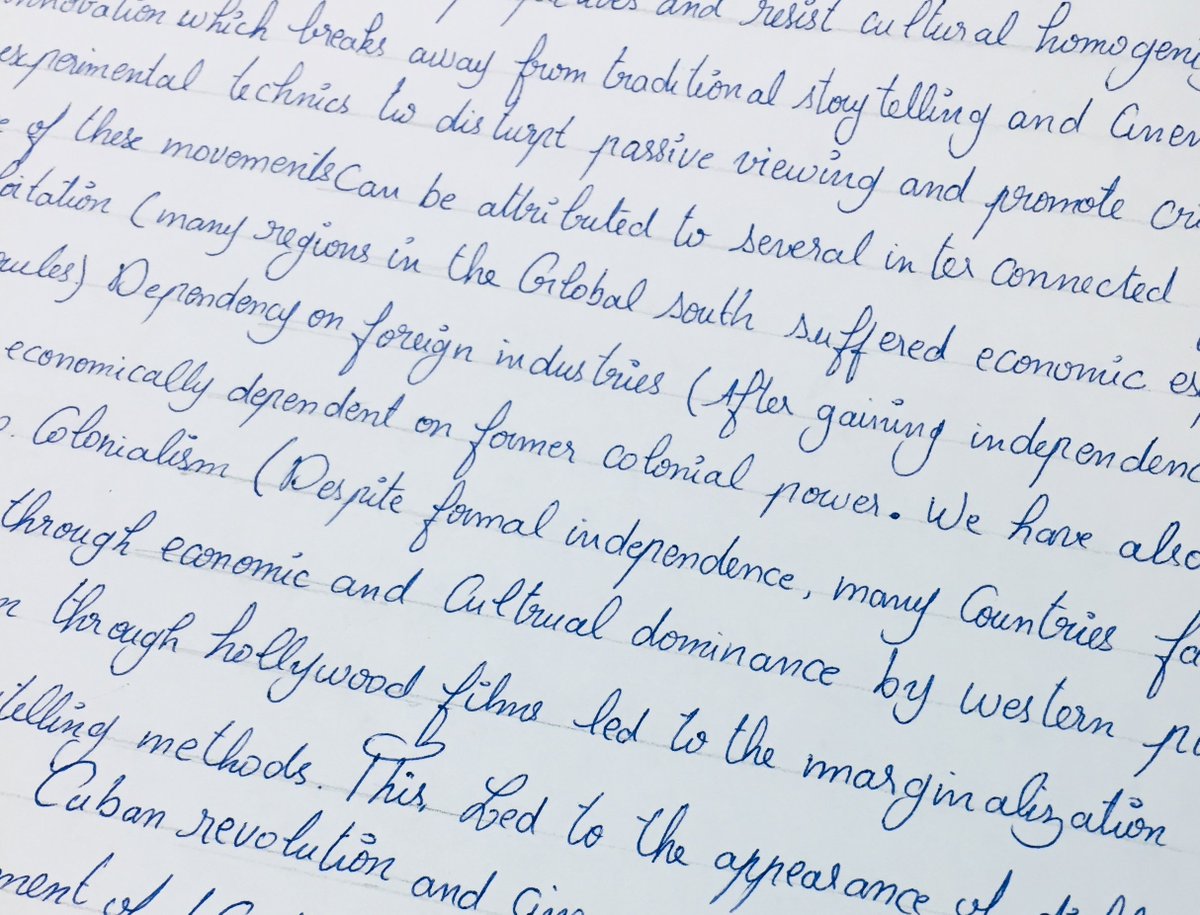 and resist cultural homogeni
nnovation which breaks away from traditional storytelling and Cinem
experimental technics to disturpt passive viewing and promote cri
e of these movements Can be attributed to several inter connected
oitation (many regions in the Global south suffered economic ex
rules) Dependency on foreign industries (After gaining independenc
economically dependent on former colonial power. We have also
o. Colonialism (Despite formal independence, many Countries fa
through economic and Cultrual dominance by western po
n through hollywood films led to the marginalization
telling methods. This Led to the appearance of
Cuban revolution and Cine
ment of